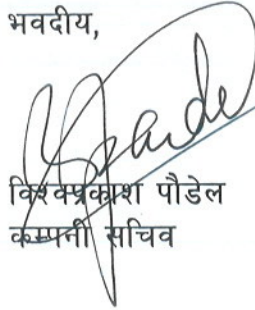 भवदीय,
विश्वप्रकाश पौडेल
कम्पनी सचिव